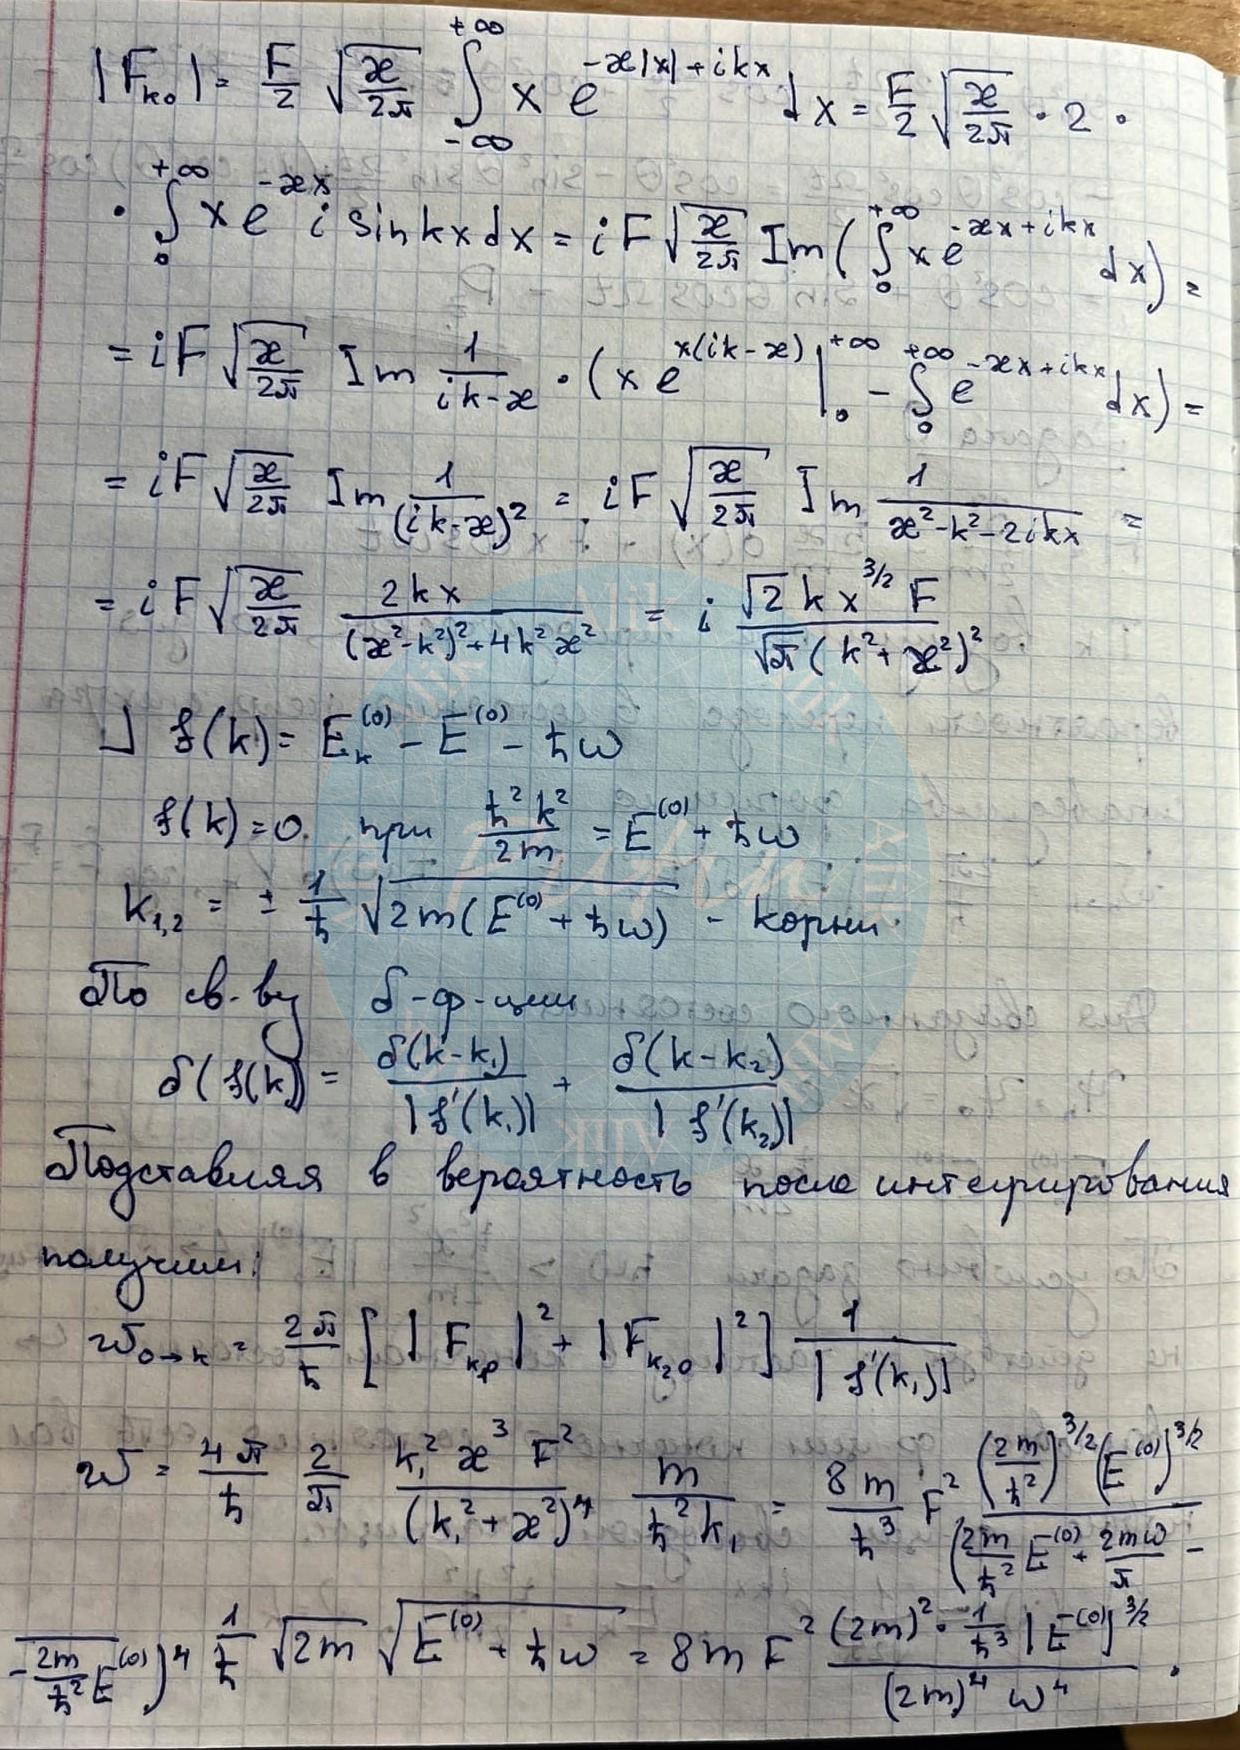 |F_{k0}| = F/2 √(æ/2π) ∫_{-∞}^{+∞} x e^{-æ|x|+ikx} dx = F/2 √(æ/2π) · 2 ·
· ∫_0^{+∞} x e^{-æx} i sin kx dx = iF √(æ/2π) Im ( ∫_0^{+∞} x e^{-æx+ikx} dx ) =
= iF √(æ/2π) Im 1/(ik-æ) · ( x e^{x(ik-æ)} |_0^{+∞} - ∫_0^{+∞} e^{-æx+ikx} dx ) =
= iF √(æ/2π) Im 1/(ik-æ)² = iF √(æ/2π) Im 1/(æ²-k²-2ikæ) =
= iF √(æ/2π) 2kæ/((æ²-k²)²+4k²æ²) = i √2 k æ^{3/2} F/(√π (k²+æ²)²)
⅃ f(k) = E_k^{(0)} - E^{(0)} - ħω
f(k)=0 при ħ²k²/2m = E^{(0)} + ħω
k_{1,2} = ± 1/ħ √(2m(E^{(0)} + ħω)) - корни
По св-ву δ-ф-ции
δ(f(k)) = δ(k-k₁)/|f'(k₁)| + δ(k-k₂)/|f'(k₂)|
Подставляя в вероятность после интегрирования
получим:
w_{0→k} = 2π/ħ [ |F_{k₁0}|² + |F_{k₂0}|² ] 1/|f'(k₁)|
w = 4π/ħ 2/π k₁² æ³ F²/(k₁²+æ²)⁴ m/(ħ²k₁) = 8m/ħ³ F² (2m/ħ²)^{3/2} (E^{(0)})^{3/2}/(2m/ħ² E^{(0)} + 2mω/ħ -
- 2m/ħ² E^{(0)})⁴ 1/ħ √2m √(E^{(0)} + ħω) = 8m F² (2m)² · 1/ħ³ |E^{(0)}|^{3/2}/((2m)⁴ ω⁴) ·